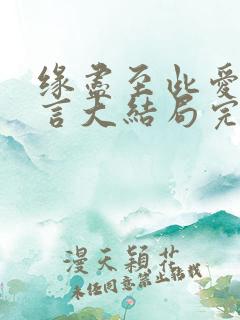 缘尽至此爱
言大结局完
漫天颖花
未经同意禁止转载